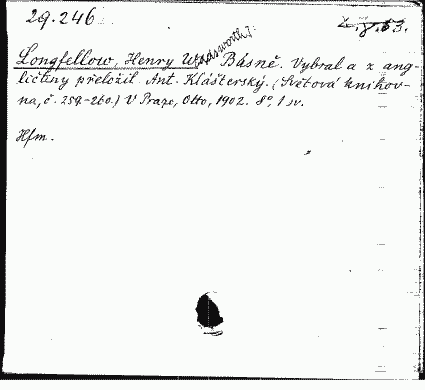 29.246
Longfellow, Henry W[adsworth]: Básně. Vybral a z ang-
ličtiny přeložil Ant. Klášterský. (Světová knihov-
na, č. 259-260.) V Praze, Otto, 1902. 8°, 1 sv.
Hfm.